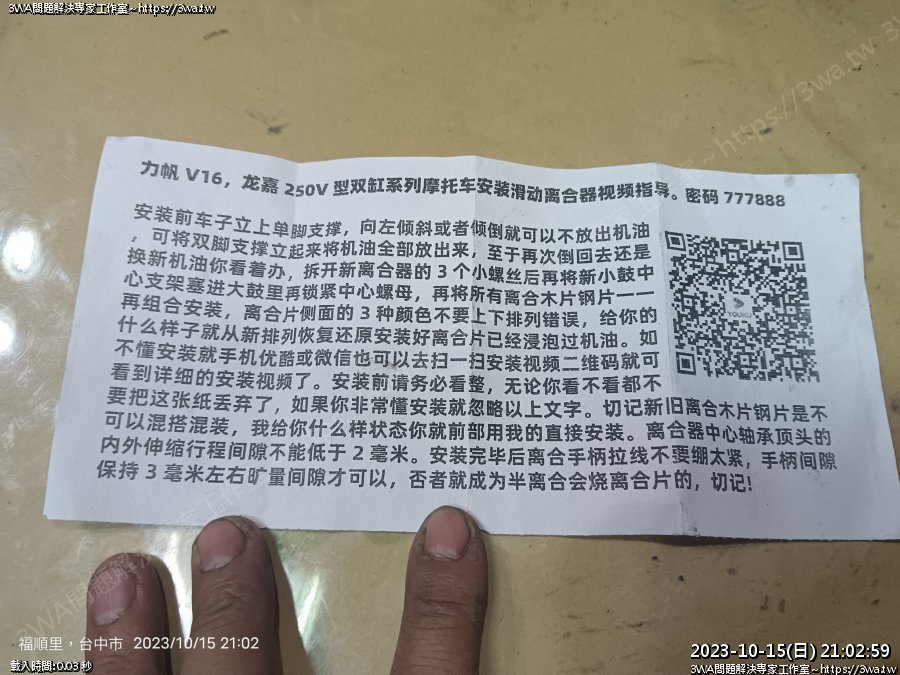 3WA問題解決專家工作室~https://3wa.tw
3WA問題解決專家工作室~https://3wa.tw
力帆 V16，龙嘉 250V 型双缸系列摩托车安装滑动离合器视频指导。密码 777888
安装前车子立上单脚支撑，向左倾斜或者倾倒就可以不放出机油
，可将双脚支撑立起来将机油全部放出来，至于再次倒回去还是
换新机油你看着办，拆开新离合器的 3 个小螺丝后再将新小鼓中
心支架塞进大鼓里再锁紧中心螺母，再将所有离合木片钢片一一
再组合安装，离合片侧面的 3 种颜色不要上下排列错误，给你的
什么样子就从新排列恢复还原安装好离合片已经浸泡过机油。如
不懂安装就手机优酷或微信也可以去扫一扫安装视频二维码就可
看到详细的安装视频了。安装前请务必看整，无论你看不看都不
要把这张纸丢弃了，如果你非常懂安装就忽略以上文字。切记新旧离合木片钢片是不
可以混搭混装，我给你什么样状态你就前部用我的直接安装。离合器中心轴承顶头的
内外伸缩行程间隙不能低于 2 毫米。安装完毕后离合手柄拉线不要绷太紧，手柄间隙
保持 3 毫米左右旷量间隙才可以，否者就成为半离合会烧离合片的，切记!
YOUKU
3WA問題解決專家工作室
福順里，台中市 2023/10/15 21:02
載入時間:0.03 秒
2023-10-15(日) 21:02:59
3WA問題解決專家工作室~https://3wa.tw